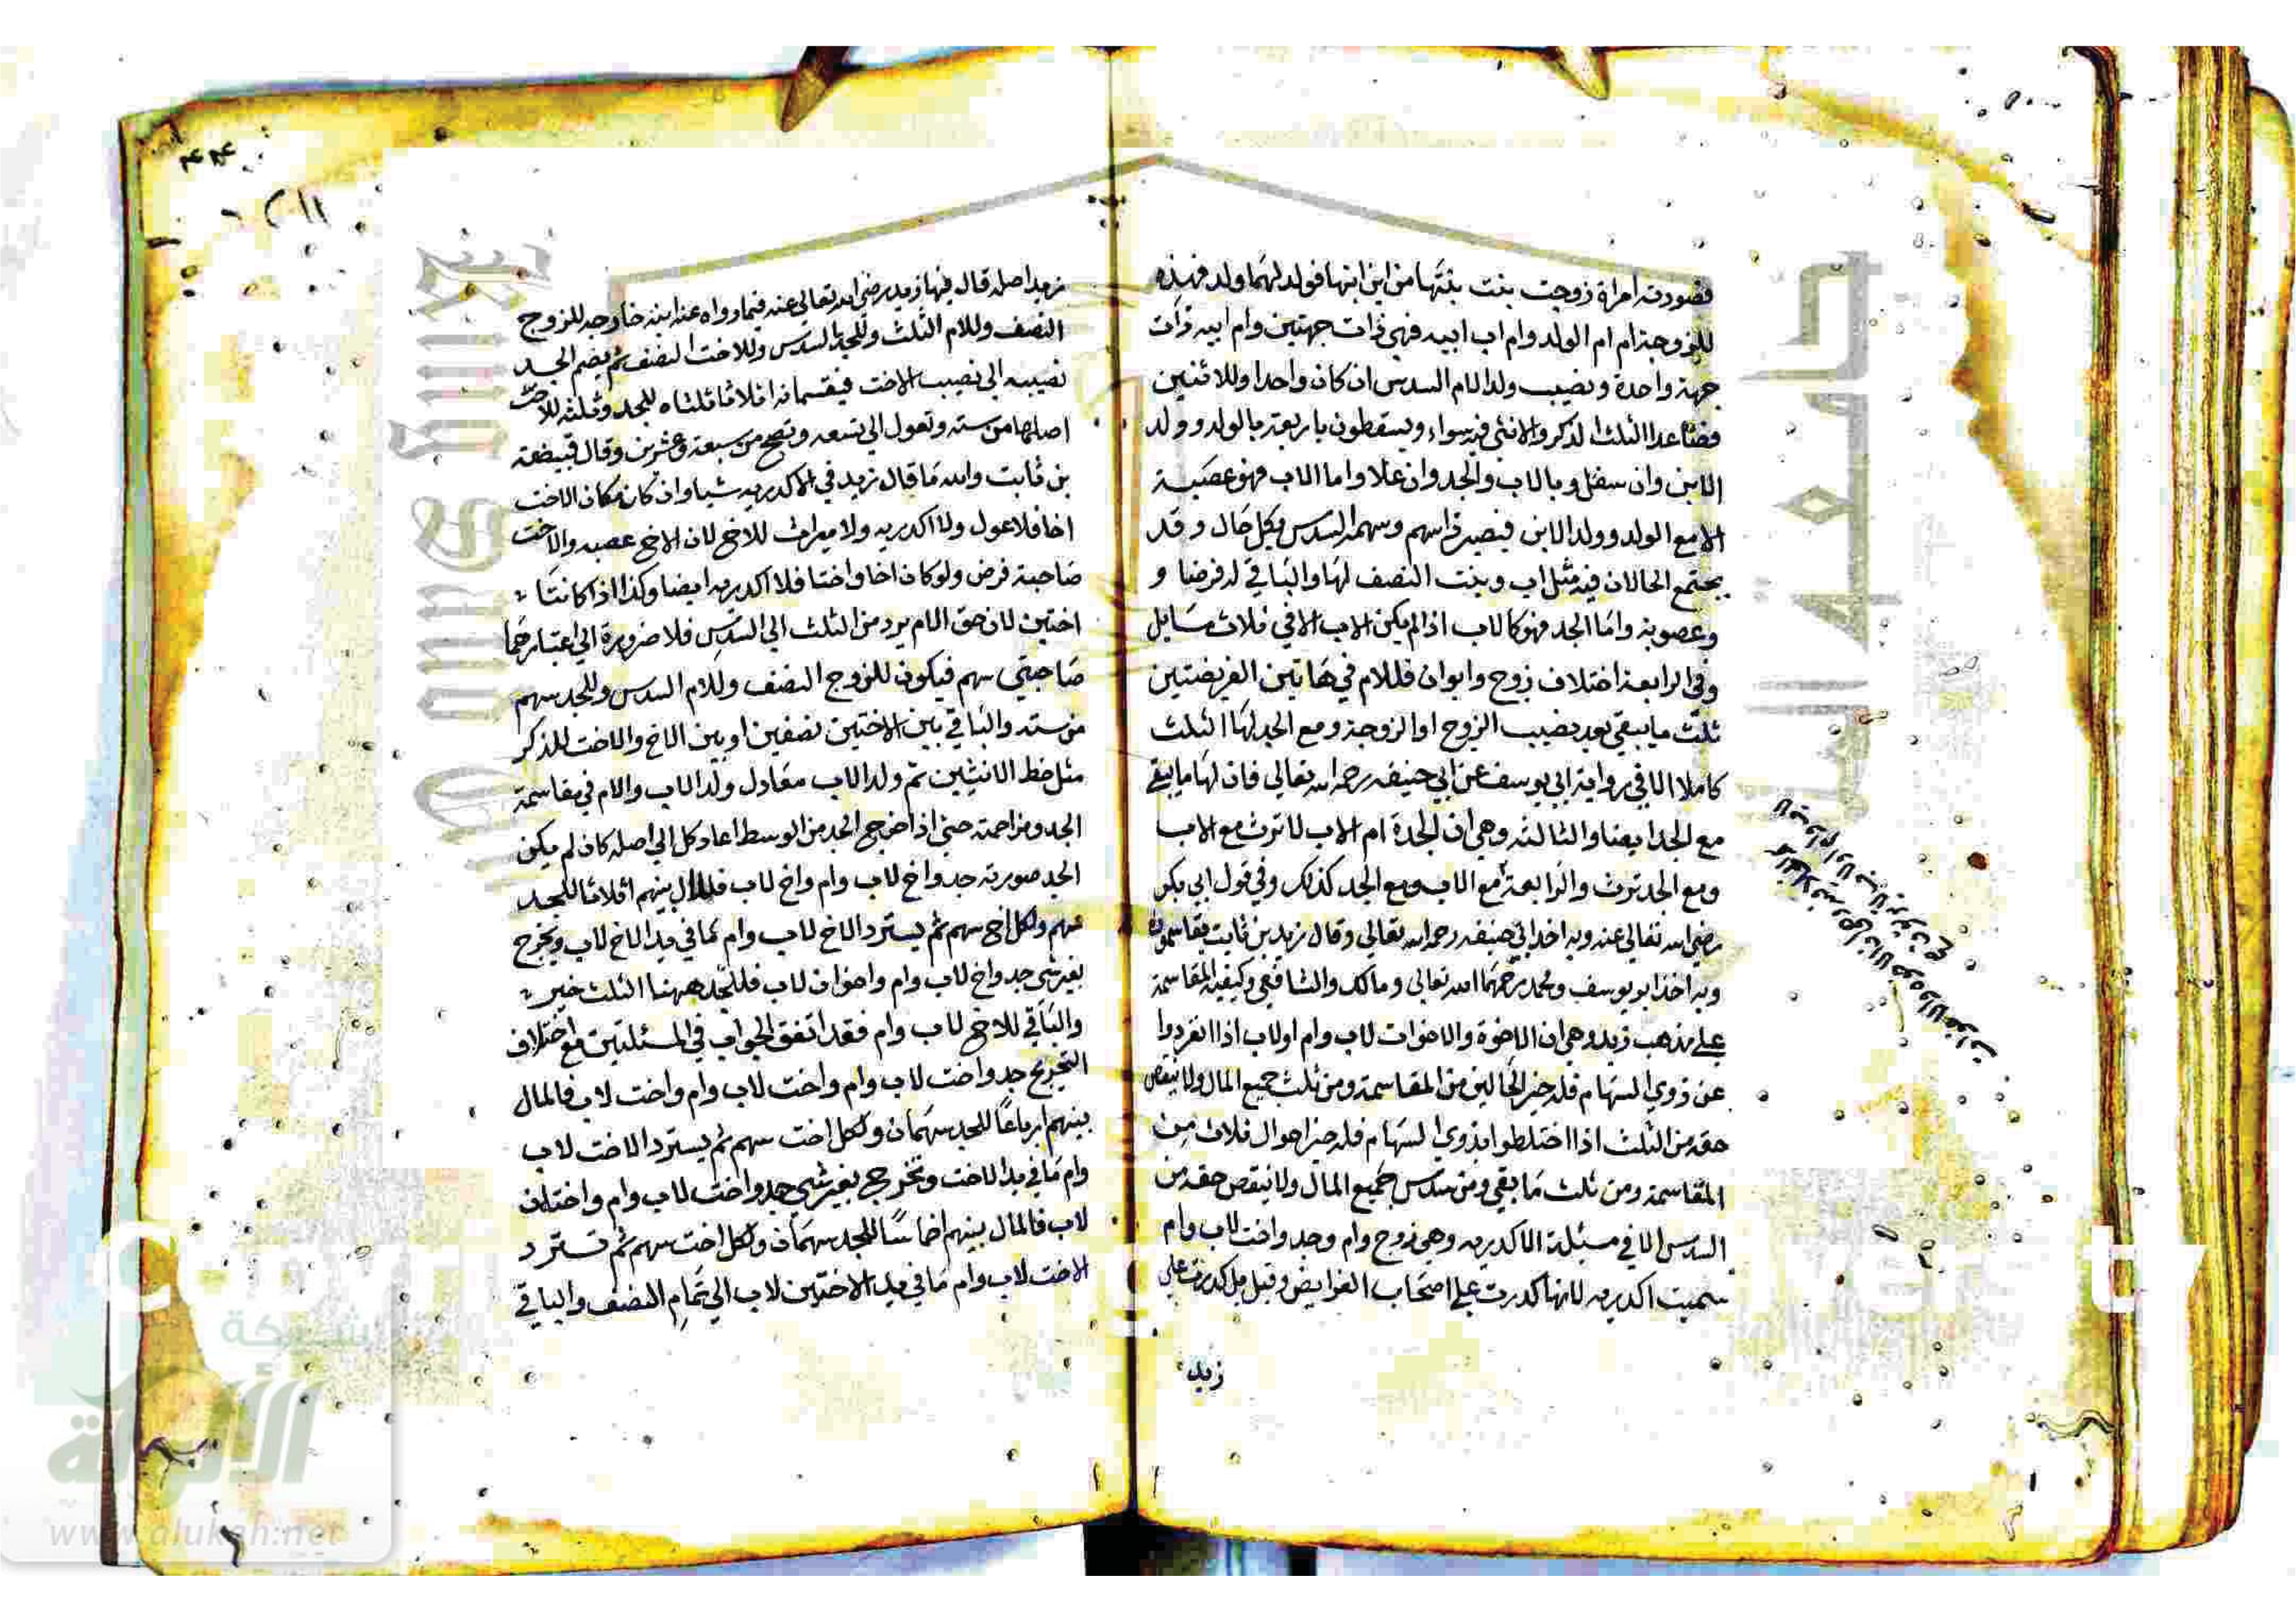 فصورته امراة زوجت بنت بنتها من ابن ابنها فولد لهما ولد فهذه
للزوجة ام ام الولد وام اب ابيه فهي ذات جهتين وام ابيه ذات
جهة واحدة ونصيب ولد الام السدس ان كان واحدا وللاثنين
فصاعدا الثلث الذكر والانثى فيه سواء ويسقطون باربعة بالولد وولد
الابن وان سفل وبالاب والجد وان علا واما الاب فهو عصبة
الا مع الولد وولد الابن فيصير ذا سهم وسهمه السدس بكل حال وقد
يجتمع الحالان فيه مثل اب وبنت النصف لها والباقي له فرضا و
وعصوبة واما الجد فهو كالاب اذا لم يكن الاب الا في ثلاث مسايل
وفي الرابعة اختلاف زوج وابوان فللام في هاتين الفريضتين
ثلث ما يبقى بعد نصيب الزوج او الزوجة ومع الجد لها الثلث
كاملا الا في رواية ابي يوسف عن ابي حنيفه رحمه الله تعالى فان لها ما يبقى
مع الجد ايضا والثالثه وهي ان الجدة ام الاب لا ترث مع الاب
ومع الجد ترث والرابعة مع الاب ومع الجد كذلك وفي قول ابي بكر
رضي الله تعالى عنه وبه اخذ ابي حنيفه رحمه الله تعالى وقال زيد بن ثابت يقاسموه
وبه اخذ ابو يوسف ومحمد رحمهما الله تعالى ومالك والشافعي وكيفية المقاسمة
على مذهب زيد وهي ان الاخوة والاخوات لاب وام او لاب اذا انفردوا
عن ذوي السهام فله خير الحالين من المقاسمة ومن ثلث جميع المال ولا ينقص
حقه من الثلث اذا اختلطوا بذوي السهام فله خير احوال ثلاث من
المقاسمة ومن ثلث ما بقي ومن سدس جميع المال ولا ينقص حقه من
السدس الا في مسئلة الاكدريه وهي زوج وام وجد واخت لاب وام
سميت اكدريه لانها كدرت على اصحاب الفرايض وقيل بل كدرت على
زيد
زيد اصله قال فيها زيد رضي الله تعالى عنه فيما رواه عنه ابنه خارجه للزوج
النصف وللام الثلث وللجد السدس وللاخت النصف ثم يضم الجد
نصيبه الى نصيب الاخت فيقسمانه اثلاثا ثلثاه للجد وثلثه للاخت
اصلها من سته وتعول الى تسعه وتصح من سبعة وعشرين وقال قبيضة
بن ثابت والله ما قال زيد في الاكدريه شيا وان كان مكان الاخت
اخا فلا عول ولا اكدريه ولا ميراث للاخ لان الاخ عصبه والاخت
صاحبة فرض ولو كان اخا واختا فلا اكدريه ايضا وكذا اذا كانتا
اختين لان حق الام يرد من الثلث الى السدس فلا ضرورة الى اعتبارهما
صاحبتي سهم فيكون للزوج النصف وللام السدس وللجد سهم
من سته والباقي بين الاختين نصفين او بين الاخ والاخت للذكر
مثل حظ الانثيين ثم ولد الاب معادل ولد الاب والام في مقاسمة
الجد ومزاحمته حتى اذا خرج الجد من الوسط اعاد كل الى اصله كان لم يكن
الجد صورته جد واخ لاب وام واخ لاب فالمال بينهم اثلاثا للجد
سهم ولكل اخ سهم ثم يسترد الاخ لاب وام ما في يد الاخ لاب ويخرج
بغير شي جد واخ لاب وام واخوان لاب فللجد ههنا الثلث خير
والباقي للاخ لاب وام فقد اتفق الجواب في المسئلتين مع اختلاف
التخريج جد واخت لاب وام واخت لاب وام واخت لاب فالمال
بينهم ارباعا للجد سهمان ولكل اخت سهم ثم يسترد الاخت لاب
وام ما في يد الاخت وتخرج بغير شي جد واخت لاب وام واختان
لاب فالمال بينهم اخماسا للجد سهمان ولكل اخت سهم ثم تسترد
الاخت لاب وام ما في يد الاختين لاب الى تمام النصف والباقي
شبكة
الألوكة
www.alukah.net